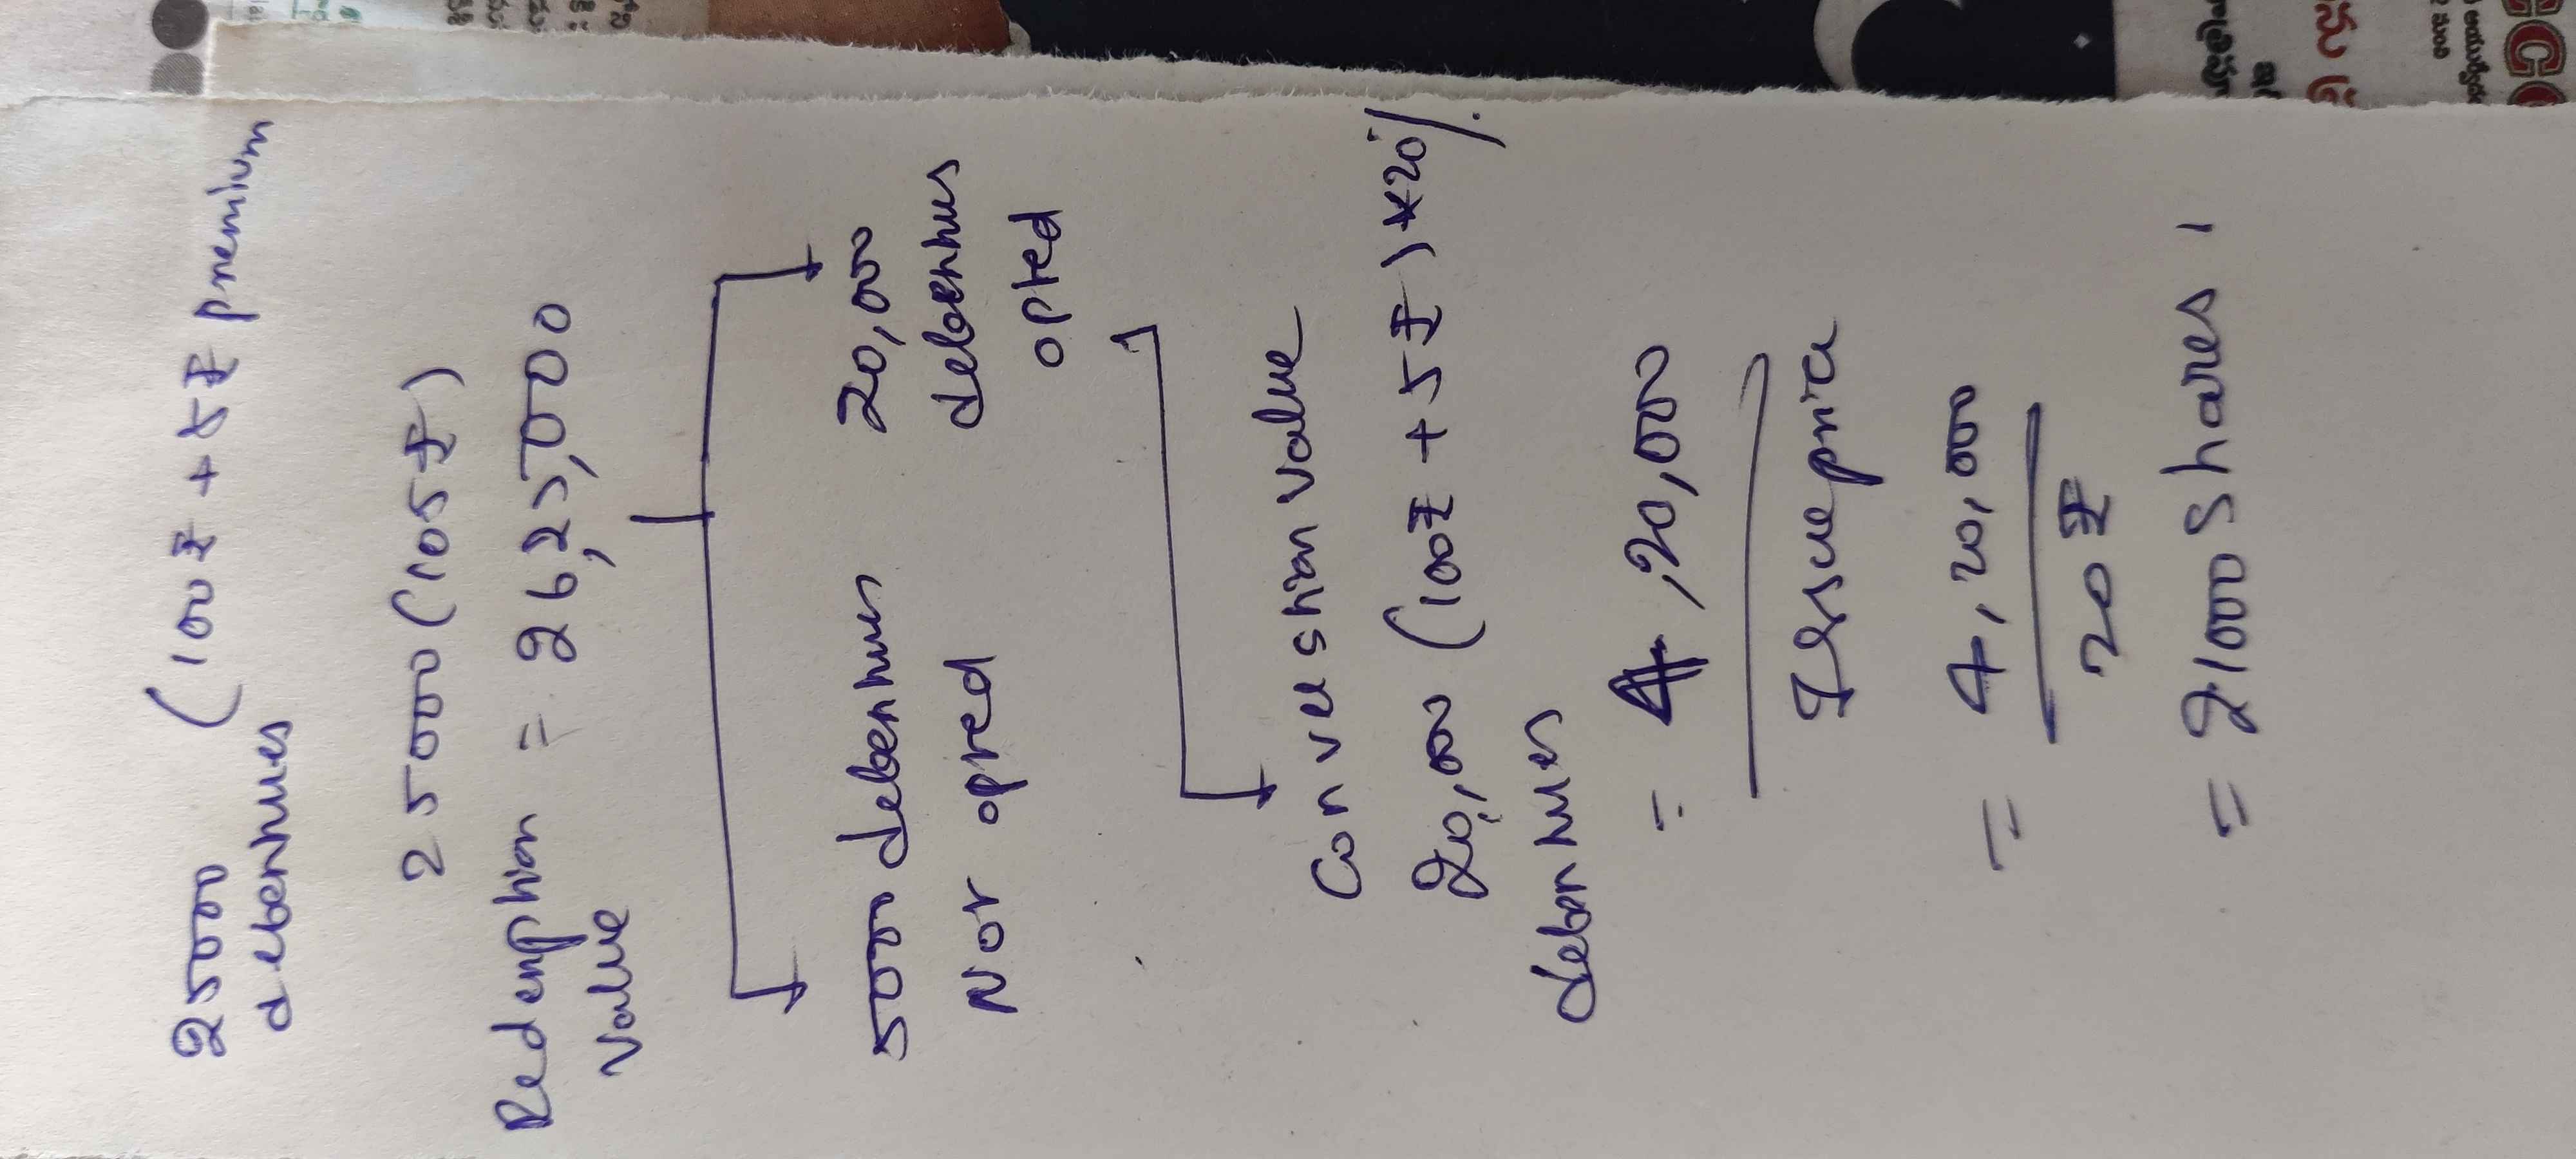 25000 (100₹ + 5₹ premium
debentures
25000 (105₹)
Redemption = 26,25,000
value
5000 debentures 20,000
Not opted debentures
opted
Conversion value
20,000 (100₹ + 5₹) *20%
debentures
= 4,20,000
Issue price
= 4,20,000
20₹
= 21000 Shares,